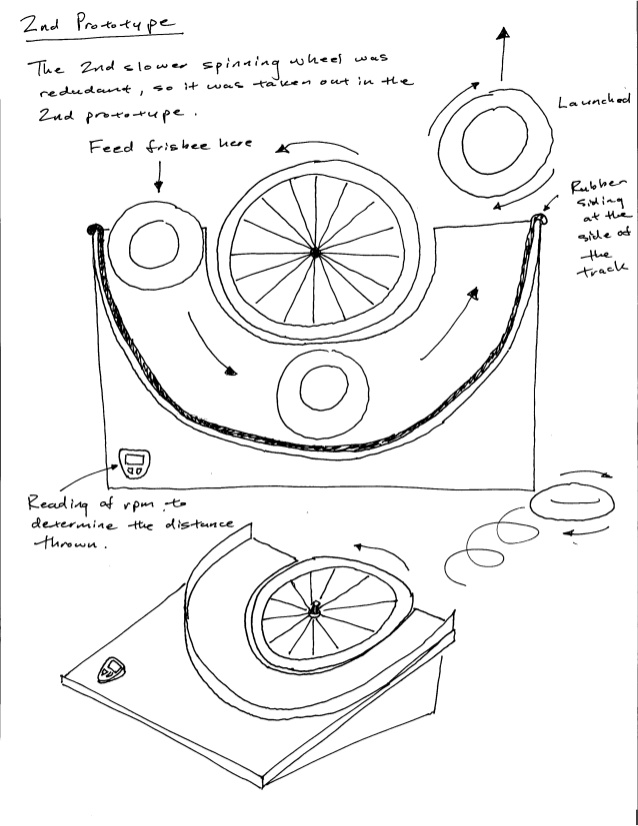 2nd Prototype
The 2nd slower spinning wheel was
redudant, so it was taken out in the
2nd prototype.
Feed frisbee here
Launched
Rubber
siding
at the
side of
the
track
Reading of rpm to
determine the distance
thrown.